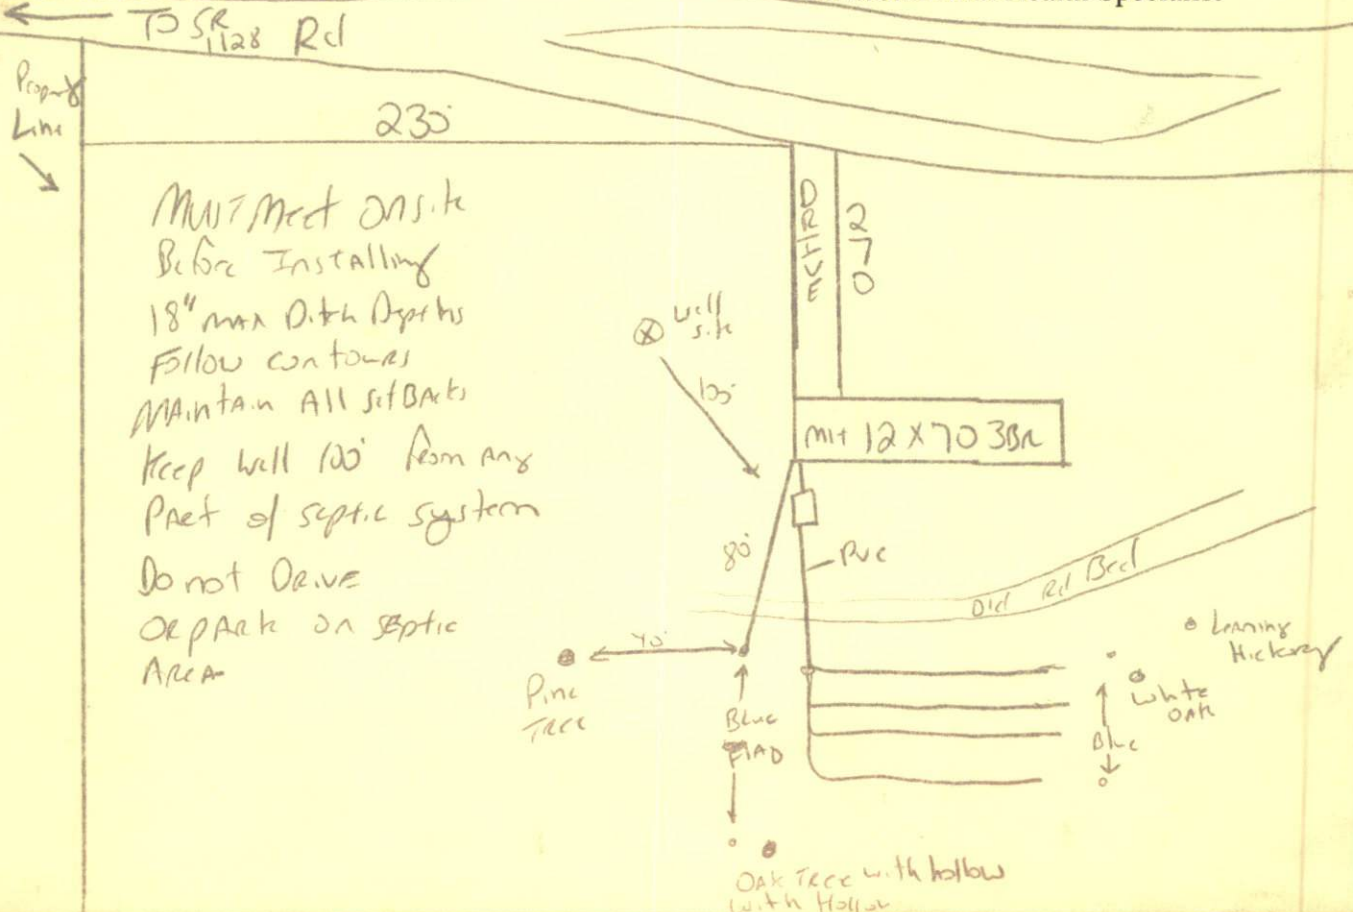 TO SR 1128 Rd
Property
Line
230'
DRIVE
270
MUST Meet Onsite
Before Installing
18" MAX Ditch Depths
Follow contours
MAintAin All setBAcks
Keep well 100' from any
Part of septic system
Do not DRIVE
OR pARk on septic
AREA
well
site
100'
MH 12 X 70 3BR
80'
PVC
Old Rd Bed
Leaning
Hickory
White
OAK
Blue
40'
Pine
TREE
Blue
FlAD
OAK Tree with hollow
with Hollow